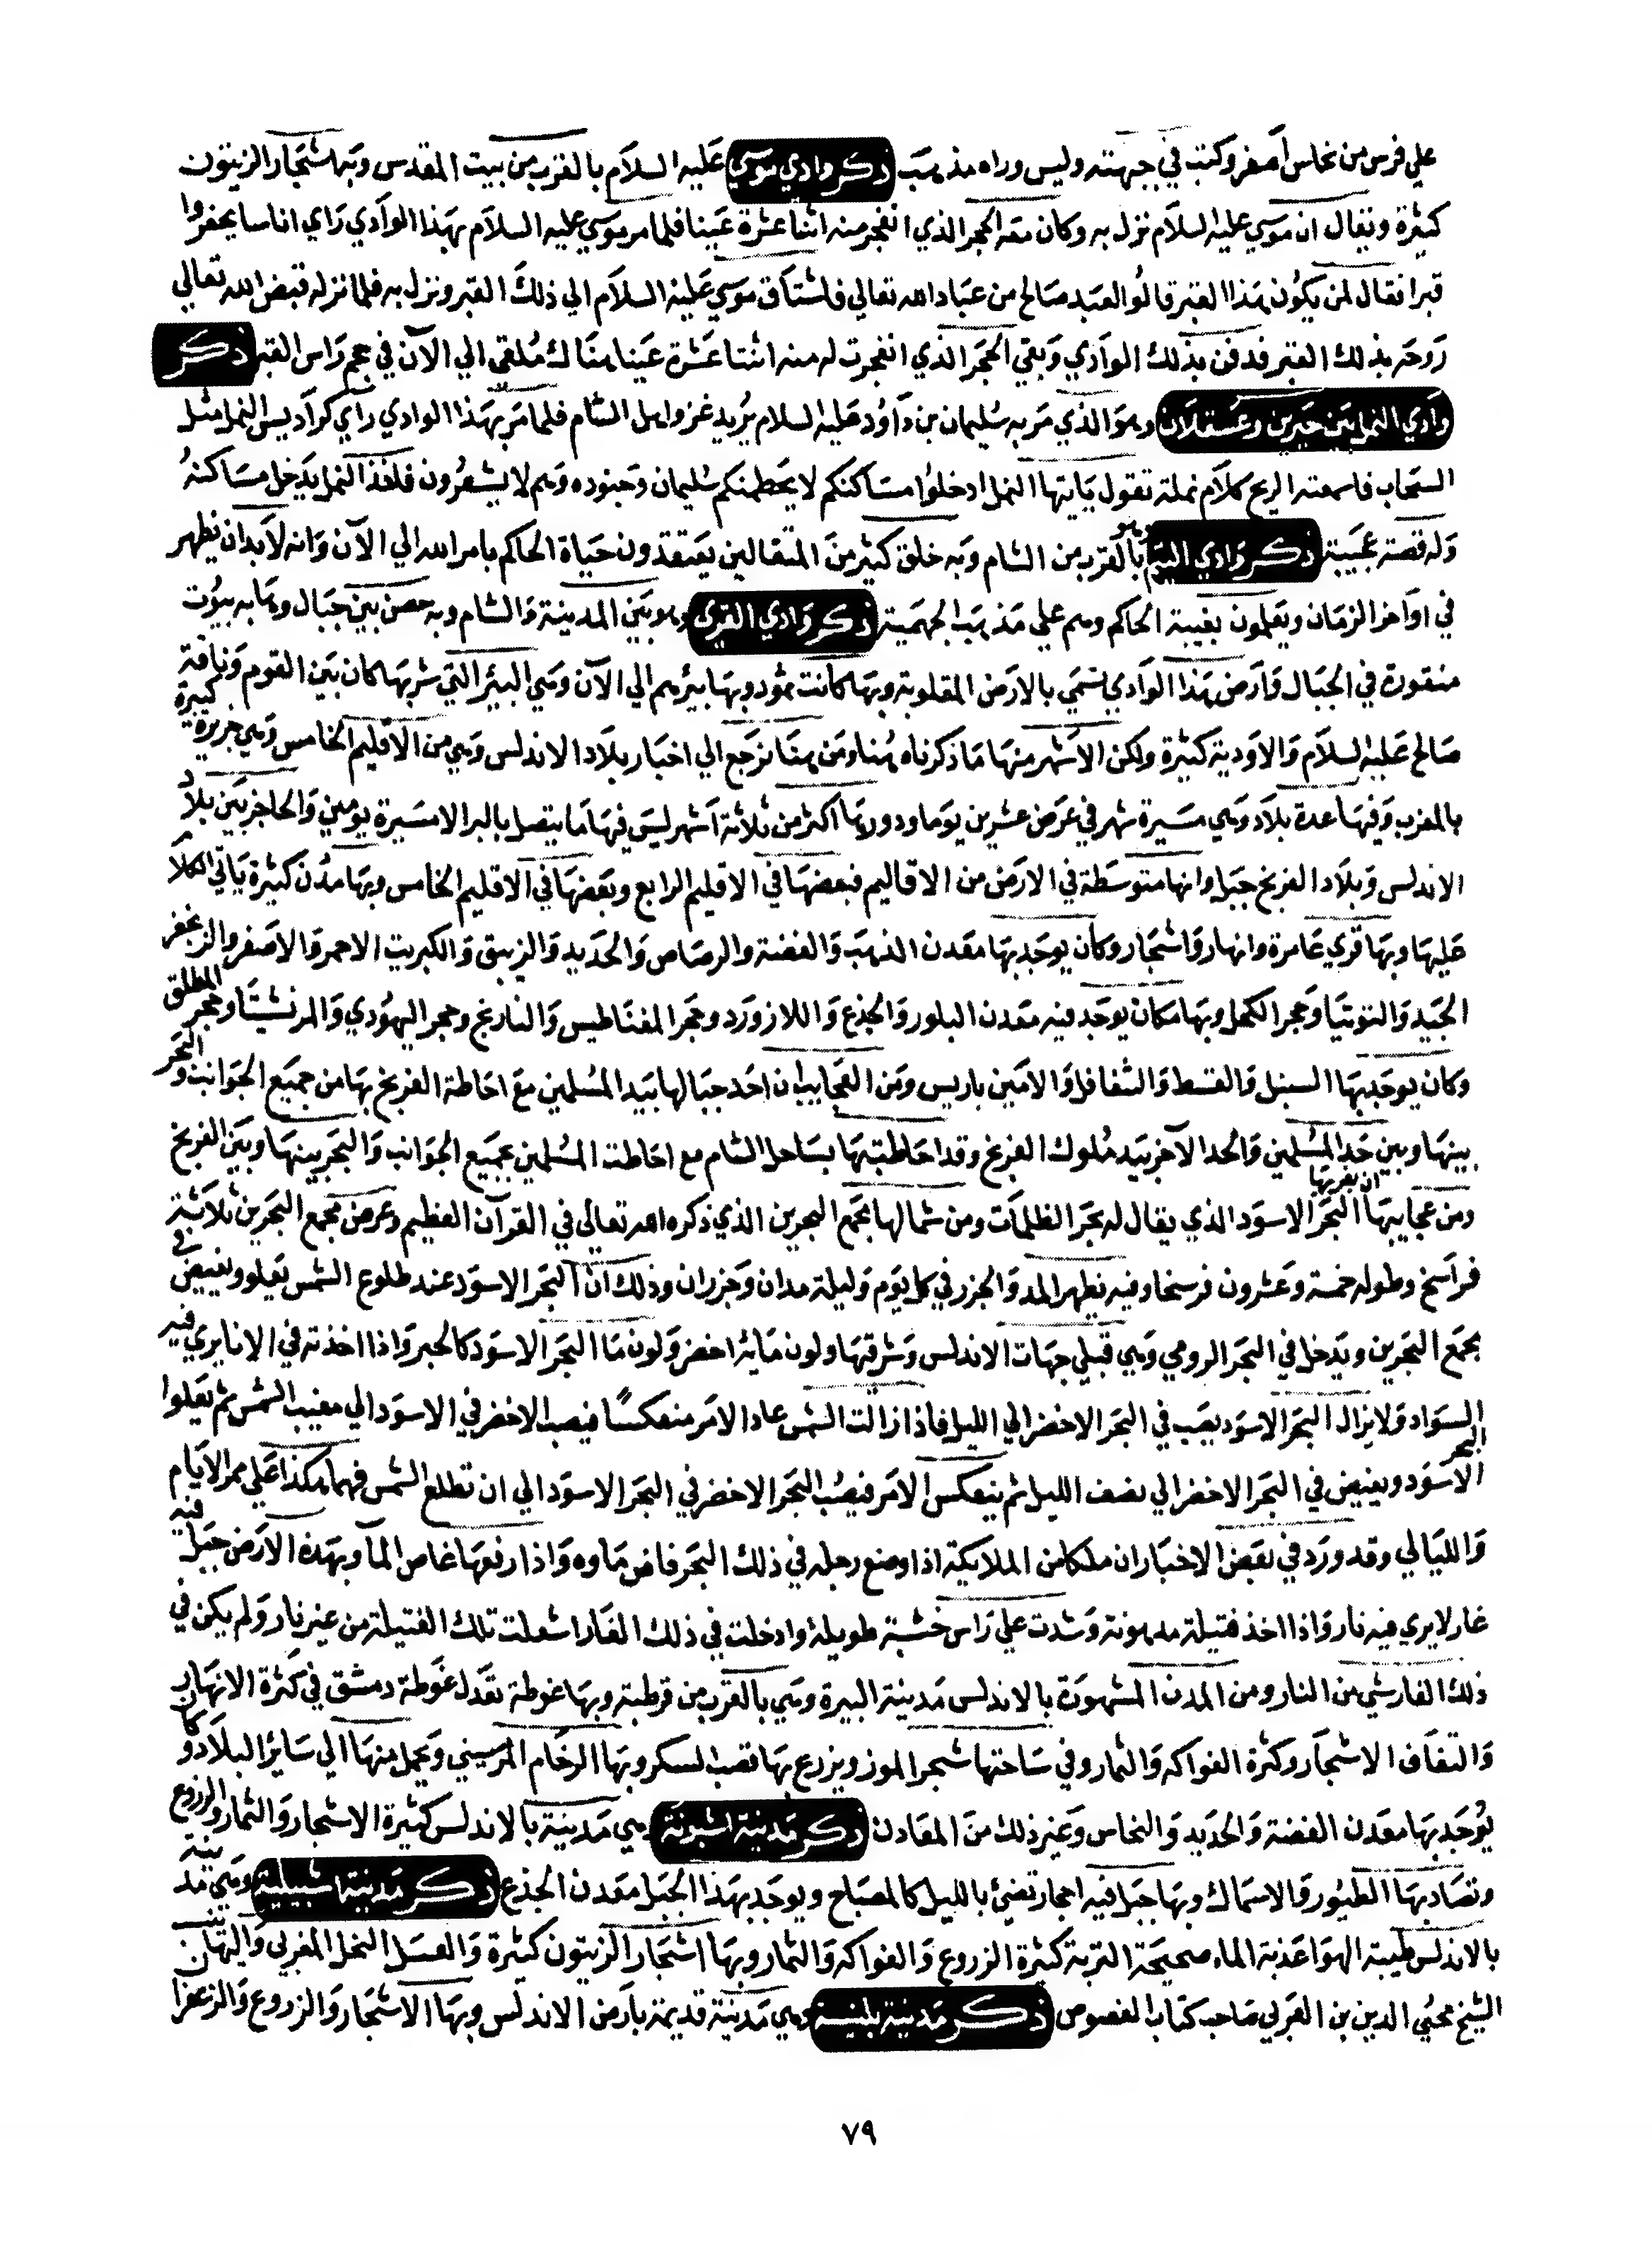 علي فرس من نحاس أصفر وكتب في جبهته وليس وراه مذهب ذكر وادي موسي عليه السلام بالقرب من بيت المقدس وبه اشجار الزيتون
كثيرة ويقال ان موسي عليه السلام نزل به وكان معه الحجر الذي انفجر منه اثنتا عشرة عينا فلما مر موسي عليه السلام بهذا الوادي راي اناسا يحفروا
قبرا فقال لمن يكون هذا القبر قالوا لعبد صالح من عباد الله تعالي فاشتاق موسي عليه السلام الي ذلك القبر ونزل به فلما نزله قبض الله تعالي
روحه بذلك القبر فدفن بذلك الوادي وبقي الحجر الذي انفجرت له منه اثنتا عشرة عينا هناك ملقي الي الآن في حجم راس القبر ذكر
وادي النمل بين جبرين وعسقلان وهو الذي مر به سليمان بن داود عليه السلام يريد غزو اهل الشام فلما مر بهذا الوادي راي كراديس النمل مثل
السحاب فاسمعته الريح كلام نملة تقول يايتها النمل ادخلوا مساكنكم لا يحطمنكم سليمان وجنوده وهم لا يشعرون فلخذ النمل يدخل مساكنه
وله قصة عجيبة ذكر وادي التيم وهو بالقرب من الشام وبه خلق كثير من المتقالين يعتقدون حياة الحاكم بامر الله الي الآن وانه لابد ان يظهر
في اواخر الزمان ويعلمون بغيبة الحاكم وهم علي مذهب الجهمية ذكر وادي القري وهو بين المدينة والشام وبه حصن بين جبال وبها به بيوت
منقورة في الجبال وارض هذا الوادي تسمي بالارض المقلوبة وبها كانت ثمود وبها بيرهم الي الآن وهي البئر التي شربها كان بين القوم وناقة
صالح عليه السلام والاودية كثيرة ولكن الاشهر منها ما ذكرناه هنا ومن هنا نرجع الي اخبار بلاد الاندلس وهي من الاقليم الخامس وهي جزيرة كبيرة
بالمغرب وفيها عدة بلاد وهي مسيرة شهر في عرض عشرين يوما ودورها اكثر من ثلاثة اشهر ليس فيها ما يتصل بالبر الا مسيرة يومين والحاجز بين بلاد
الاندلس وبلاد الفرنج جبل وانها متوسطة في الارض من الاقاليم فبعضها في الاقليم الرابع وبعضها في الاقليم الخامس وبها مدن كثيرة ياتي الكلام
عليها وبها قري عامرة وانهار واشجار وكان يوجد بها معدن الذهب والفضة والرصاص والحديد والزيبق والكبريت الاحمر والاصفر والزنجفر
الجيد والتوتيا وحجر الكحل وبها مكان يوجد فيه معدن البلور والجذع واللازورد وحجر المغناطيس والنارنج وحجر اليهودي والمرقشيتا وحجر المطلق
وكان يوجد بها السنبل والقسط والامين باريس ومن العجايب ان احد جبالها بيد المسلمين مع احاطة الفرنج بها من جميع الجوانب والبحر
بينها وبين حد المسلمين والحد الآخر بيد ملوك الفرنج وقد احاطت بها بساحل الشام مع احاطت المسلمين بجميع الجوانب والبحر بينها وبين الفرنج
ومن عجايبها ان بغربها البحر الاسود الذي يقال له بحر الظلمات ومن شمالها مجمع البحرين الذي ذكره الله تعالي في القرآن العظيم وعرض مجمع البحرين ثلاثة
فراسخ وطوله خمسة وعشرون فرسخا وفيه يظهر المد والجزر في كل يوم وليلة مدان وجزران وذلك ان البحر الاسود عند طلوع الشمس يعلو ويفيض في
مجمع البحرين ويدخل في البحر الرومي وهي قبلي جهات الاندلس وشرقيها ولون مائه اخضر ولون ما البحر الاسود كالحبر واذا اخذته في الانا يري فيه
السواد ولا يزال البحر الاسود يصب في البحر الاخضر الي الليل فاذا زالت الشمس عاد الامر منعكسًا فيصب الاخضر في الاسود الي مغيب الشمس ثم يعلوا
البحر الاسود ويفيض في البحر الاخضر الي نصف الليل ثم ينعكس الامر فيصب البحر الاخضر في البحر الاسود الي ان تطلع الشمس فهما هكذا علي ممر الايام
والليالي وقد ورد في بعض الاخبار ان ملكا من الملايكة اذا وضع رجله في ذلك البحر فاض ماوه واذا رفعها غاص المآ وبهذه الارض جبل فيه
غار لا يري فيه نار واذا اخذ فتيلة مدهونة وشدت علي راس خشبة طويلة وادخلت في ذلك الغار اشعلت تلك الفتيلة من غير نار ولم يكن في
ذلك الغار شي من النار ومن المدن المشهورة بالاندلس مدينة البيرة وهي بالقرب من قرطبة وبها غوطة تعدل غوطة دمشق في كثرة الانهار
والتفاف الاشجار وكثرة الفواكه والثمار وفي ساحتها شجر الموز ويزرع بها قصب السكر وبها الرخام المرسيني ويحمل منها الي سائر البلاد وكان
يوجد بها معدن الفضة والحديد والنحاس وغير ذلك من المعادن ذكر مدينة اشبونة وهي مدينة بالاندلس كثيرة الاشجار والثمار والزروع
وتصاد بها الطيور والاسماك وبها جبل فيه احجار تضئ بالليل كالمصباح ويوجد بهذا الجبل معدن الجذع ذكر مدينة شبيلية وهي مدينة
بالاندلس طيبة الهوا عذبة الماء صحيحة التربة كثيرة الزروع والفواكه والثمار وبها اشجار الزيتون كثيرة والعسل النحل المغربي واليها ينسب
الشيخ محيي الدين بن العربي صاحب كتاب الفصوص ذكر مدينة بلنسية وهي مدينة قديمة بارض الاندلس وبها الاشجار والزروع والزعفران
٧٩